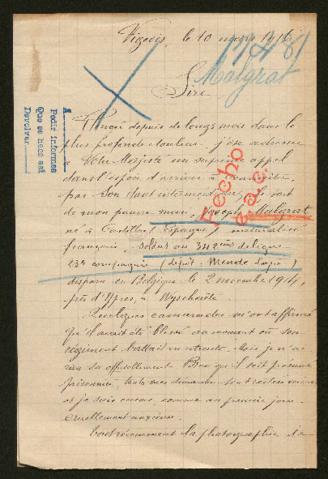 le 10 mars 1916
Malgrat
Sire
A
Pedir informes
Que se hace así
Devolver
Fecho
depuis de longs mois dans le
plus profonde douleur, j'ose adresser
Votre Majesté un suprême appel
dans l'espoir d'arriver à
par Son haut intermédiaire, le sort
de mon pauvre Joseph Malgrat
né à Castellar Espagne
français, soldat au 342ème de ligne
23e compagnie (dépôt Mende Lozère)
disparu en Belgique le 2 novembre 1914,
près d'Ypres, à Wyschaëte
camarades m'ont affirmé
qu'il avait été blessé au moment où son
régiment battait en retraite, mais je n'ai
rien su officiellement. Bien qu'il soit présumé
prisonnier, toutes mes demandes sont restées vaines
et je suis encore, comme au premier jour
cruellement anxieuse.
la photographie